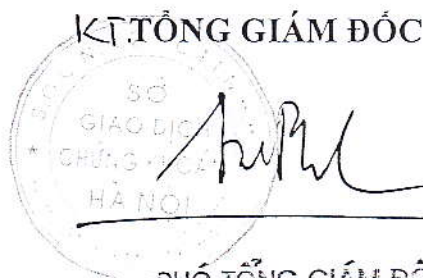 KT.TỔNG GIÁM ĐỐC
SỞ
GIAO DỊCH
CHỨNG
HÀ NỘI
PHÓ TỔNG GIÁM ĐỐC